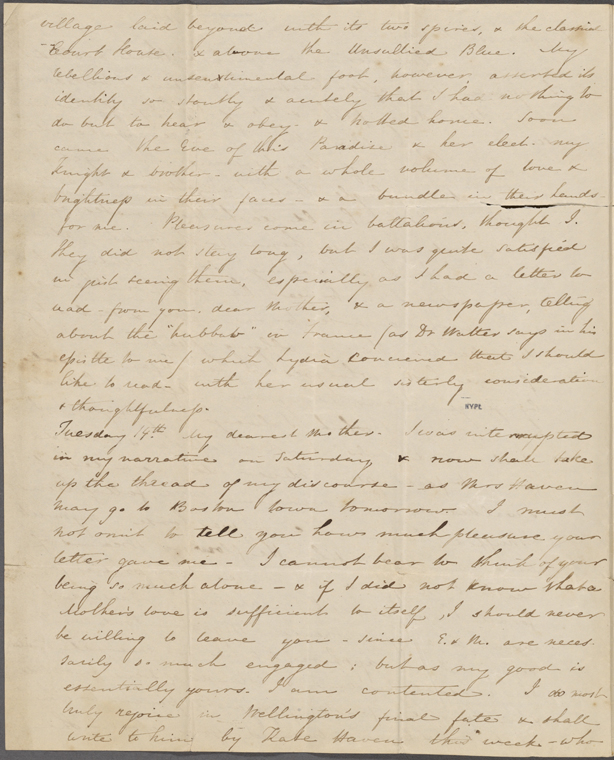 village laid beyond with its two spires, & the classical
Court House. & above the Unsullied Blue. My
rebellious & unsentimental foot, however, asserted its
identity so stoutly & acutely that I had nothing to
do but to hear & obey - & trotted home. Soon
came the Eve of this Paradise & her elect. my
Knight & brother - with a whole volume of love &
brightness in their faces - & a bundle in their hands -
for me. Pleasures come in battalions, thought I.
They did not stay long, but I was quite satisfied
in just seeing them, especially as I had a letter to
read - from you, dear Mother, & a newspaper, telling
about the "hubbub" in France (as Dr Walter says in his
epistle to me) which Lydia conceived that I should
like to read - with her usual sisterly consideration
& thoughtfulness.
NYPL
Tuesday 14th My dearest Mother - I was interrupted
in my narrative on Saturday & now shall take
up the thread of my discourse - as Mrs Haven
may go to Boston town tomorrow. I must
not omit to tell you how much pleasure your
letter gave me - I cannot bear to think of your
being so much alone - & if I did not know that a
Mother's love is sufficient to itself, I should never
be willing to leave you - since E. & M. are neces-
sarily so much engaged; but as my good is
essentially yours. I am contented. I do most
truly rejoice in Wellington's final fate & shall
write to him by Kate Haven this week - who